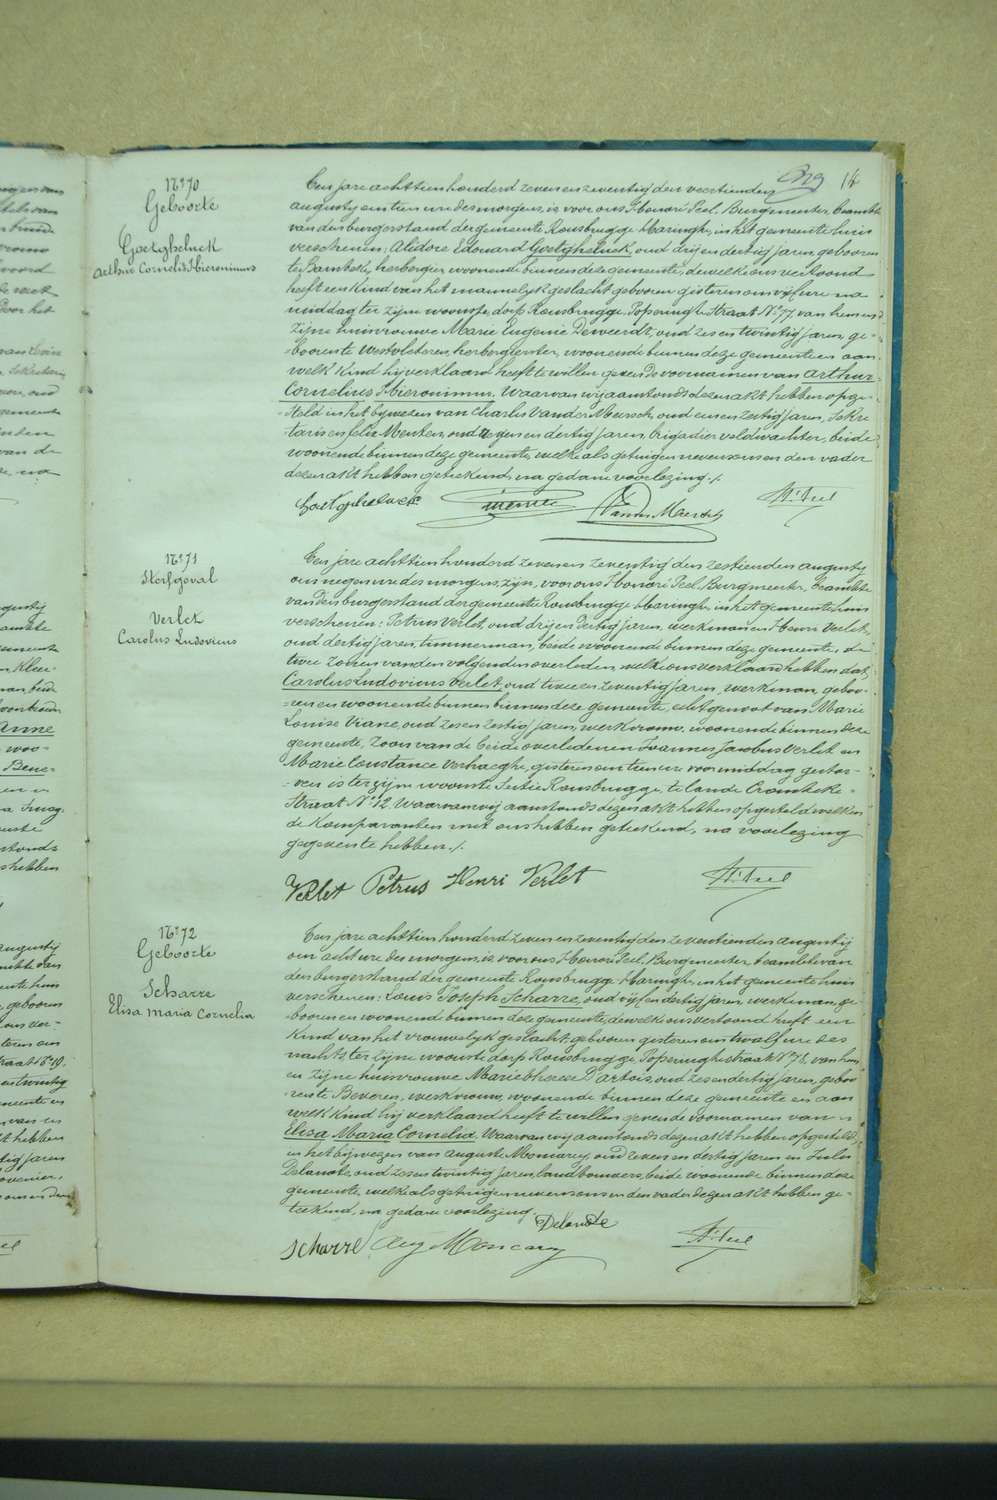 329 14
N° 70
Geboorte
Goetgheluck
Arthur Cornelis Hieronimus
Een jare achttien honderd zeven en zeventig den veertienden
augusty om tien ure des morgens, is voor ons Honoré Peel, Burgmeester, beambte
van den burgerstand der gemeente Rousbrugge Haringhe, in het gemeente huis
verschenen: Alidore Edouard Goetgheluck, oud drij en dertig jaren, geboren
te Bambeke, herbergier, woonende binnen deze gemeente, dewelke ons vertoond
heeft een kind van het mannelijk geslacht geboren gisteren om vijf ure na
middag ter zijne woonste, dorp Rousbrugge, Poperinghe Straat N° 77, van hem en
zijne huisvrouwe Marie Eugenie Deweerdt, oud zes en twintig jaren, ge-
=boren te Westvleteren, herbergierster, woonende binnen deze gemeente en aan
welk kind hij verklaard heeft te willen geven de voornamen van Arthur
Cornelius Hieronimus. Waarvan wij aanstonds dezen akt hebben opge-
=steld in het bijwezen van Charles Vander Meersch, oud een en zestig jaren, Sekre
taris en felix Menten, oud negen en dertig jaren, brigadier veldwachter, beide
woonende binnen deze gemeente, welke als getuigen nevens ons en den vader
dezen akt hebben geteekend, na gedane voorlezing./.
Goetgheluck Vander Meersch H. Peel
N° 71
Sterfgeval
Verlet
Carolus Ludovicus
Een jare achttien honderd zeven en zeventig den zestienden augusty
om negen ure des morgens, zijn, voor ons Honoré Peel, Burgmeester, beambte
van den burgerstand der gemeente Rousbrugge Haringhe, in het gemeente huis
verschenen: Petrus Verlet, oud drij en dertig jaren, werkman en Henri Verlet,
oud dertig jaren, timmerman, beide woonende binnen deze gemeente, de
twee zonen van den volgenden overleden, welke ons verklaard hebben dat
Carolus Ludovicus Verlet, oud twee en zeventig jaren, werkman, geboo-
=ren en woonende binnen binnen deze gemeente, echtgenoot van Marie
Louise Viane, oud zes en zestig jaren, werkvrouw, woonende binnen deze
gemeente, Zoon van de beide overledenen Joannes Jacobus Verlet en
Marie Constance Verhaeghe, gisteren om tien ure voormiddag gestor-
=ven is ter zijne woonste Sectie Rousbrugge, te lande Crombeke-
Straat N° 12. Waarvan wij aanstonds dezen akt hebben opgesteld welken
de komparanten met ons hebben geteekend, na voorlezing
gegeven te hebben./.
Verlet Petrus Henri Verlet H. Peel
N° 72
Geboorte
Scharre
Elisa Maria Cornelia
Een jare achttien honderd zeven en zeventig den zeventienden augustij
om acht ure des morgens, is voor ons Honoré Peel, Burgmeester, beambte van
den burgerstand der gemeente Rousbrugge Haringhe, in het gemeente huis
verschenen: Louis Joseph Scharre, oud vijf en dertig jaren, werkman, ge-
boren en woonende binnen deze gemeente, dewelke ons vertoond heeft een
kind van het vrouwelijk geslacht, geboren gisteren om twalf ure des
nachts ter zijne woonste dorp Rousbrugge, Poperinghestraat N° 78, van hem
en zijne huisvrouwe Marie Therese Dartois, oud zes en dertig jaren, geboo
ren te Beveren, werkvrouw, woonende binnen deze gemeente en aan
welk kind hij verklaard heeft te willen geven de voornamen van
Elisa Maria Cornelia. Waarvan wij aanstonds dezen akt hebben opgesteld
in het bijwezen van Auguste Moncarey, oud zeven en dertig jaren en Jules
Delanote, oud zes en twintig jaren, landbouwers, beide woonende binnen deze
gemeente, welke als getuigen nevens ons en den vader dezen akt hebben ge-
teekend, na gedane voorlezing.
Scharre Aug Moncarey Delanote H. Peel